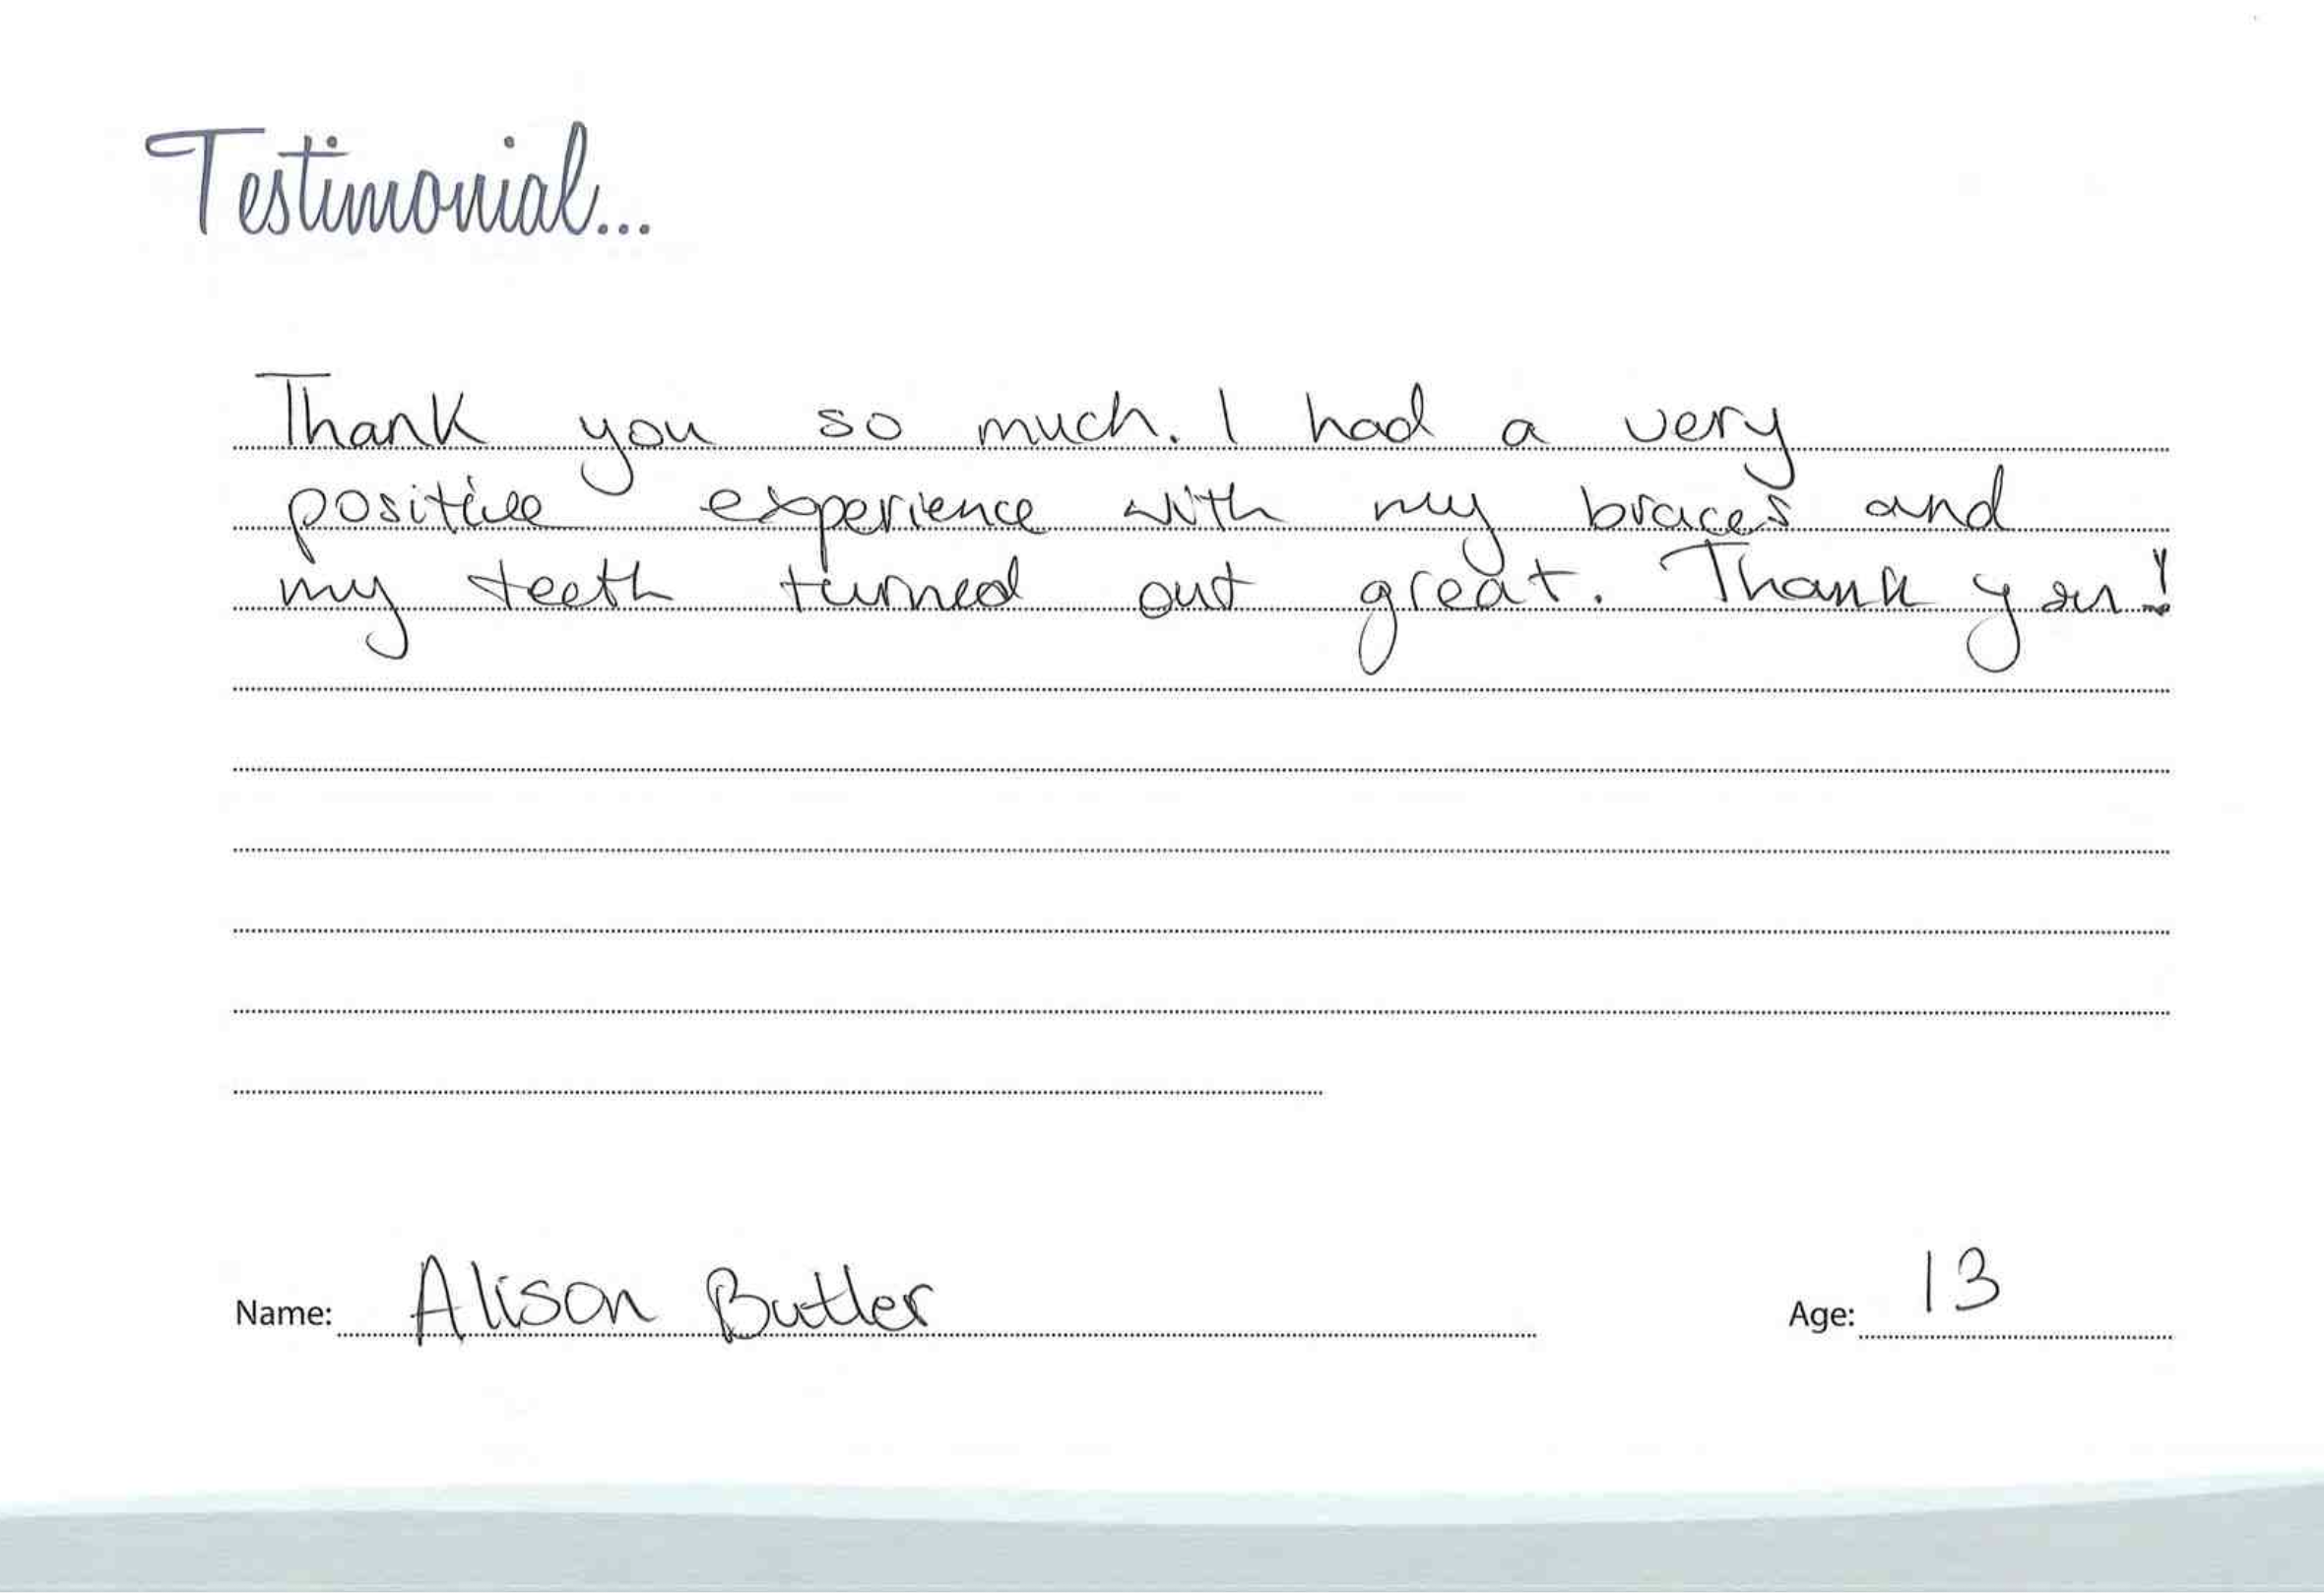 Testimonial...
Thank you so much. I had a very
positive experience with my braces and
my teeth turned out great. Thank you!
Name: Alison Butler Age: 13